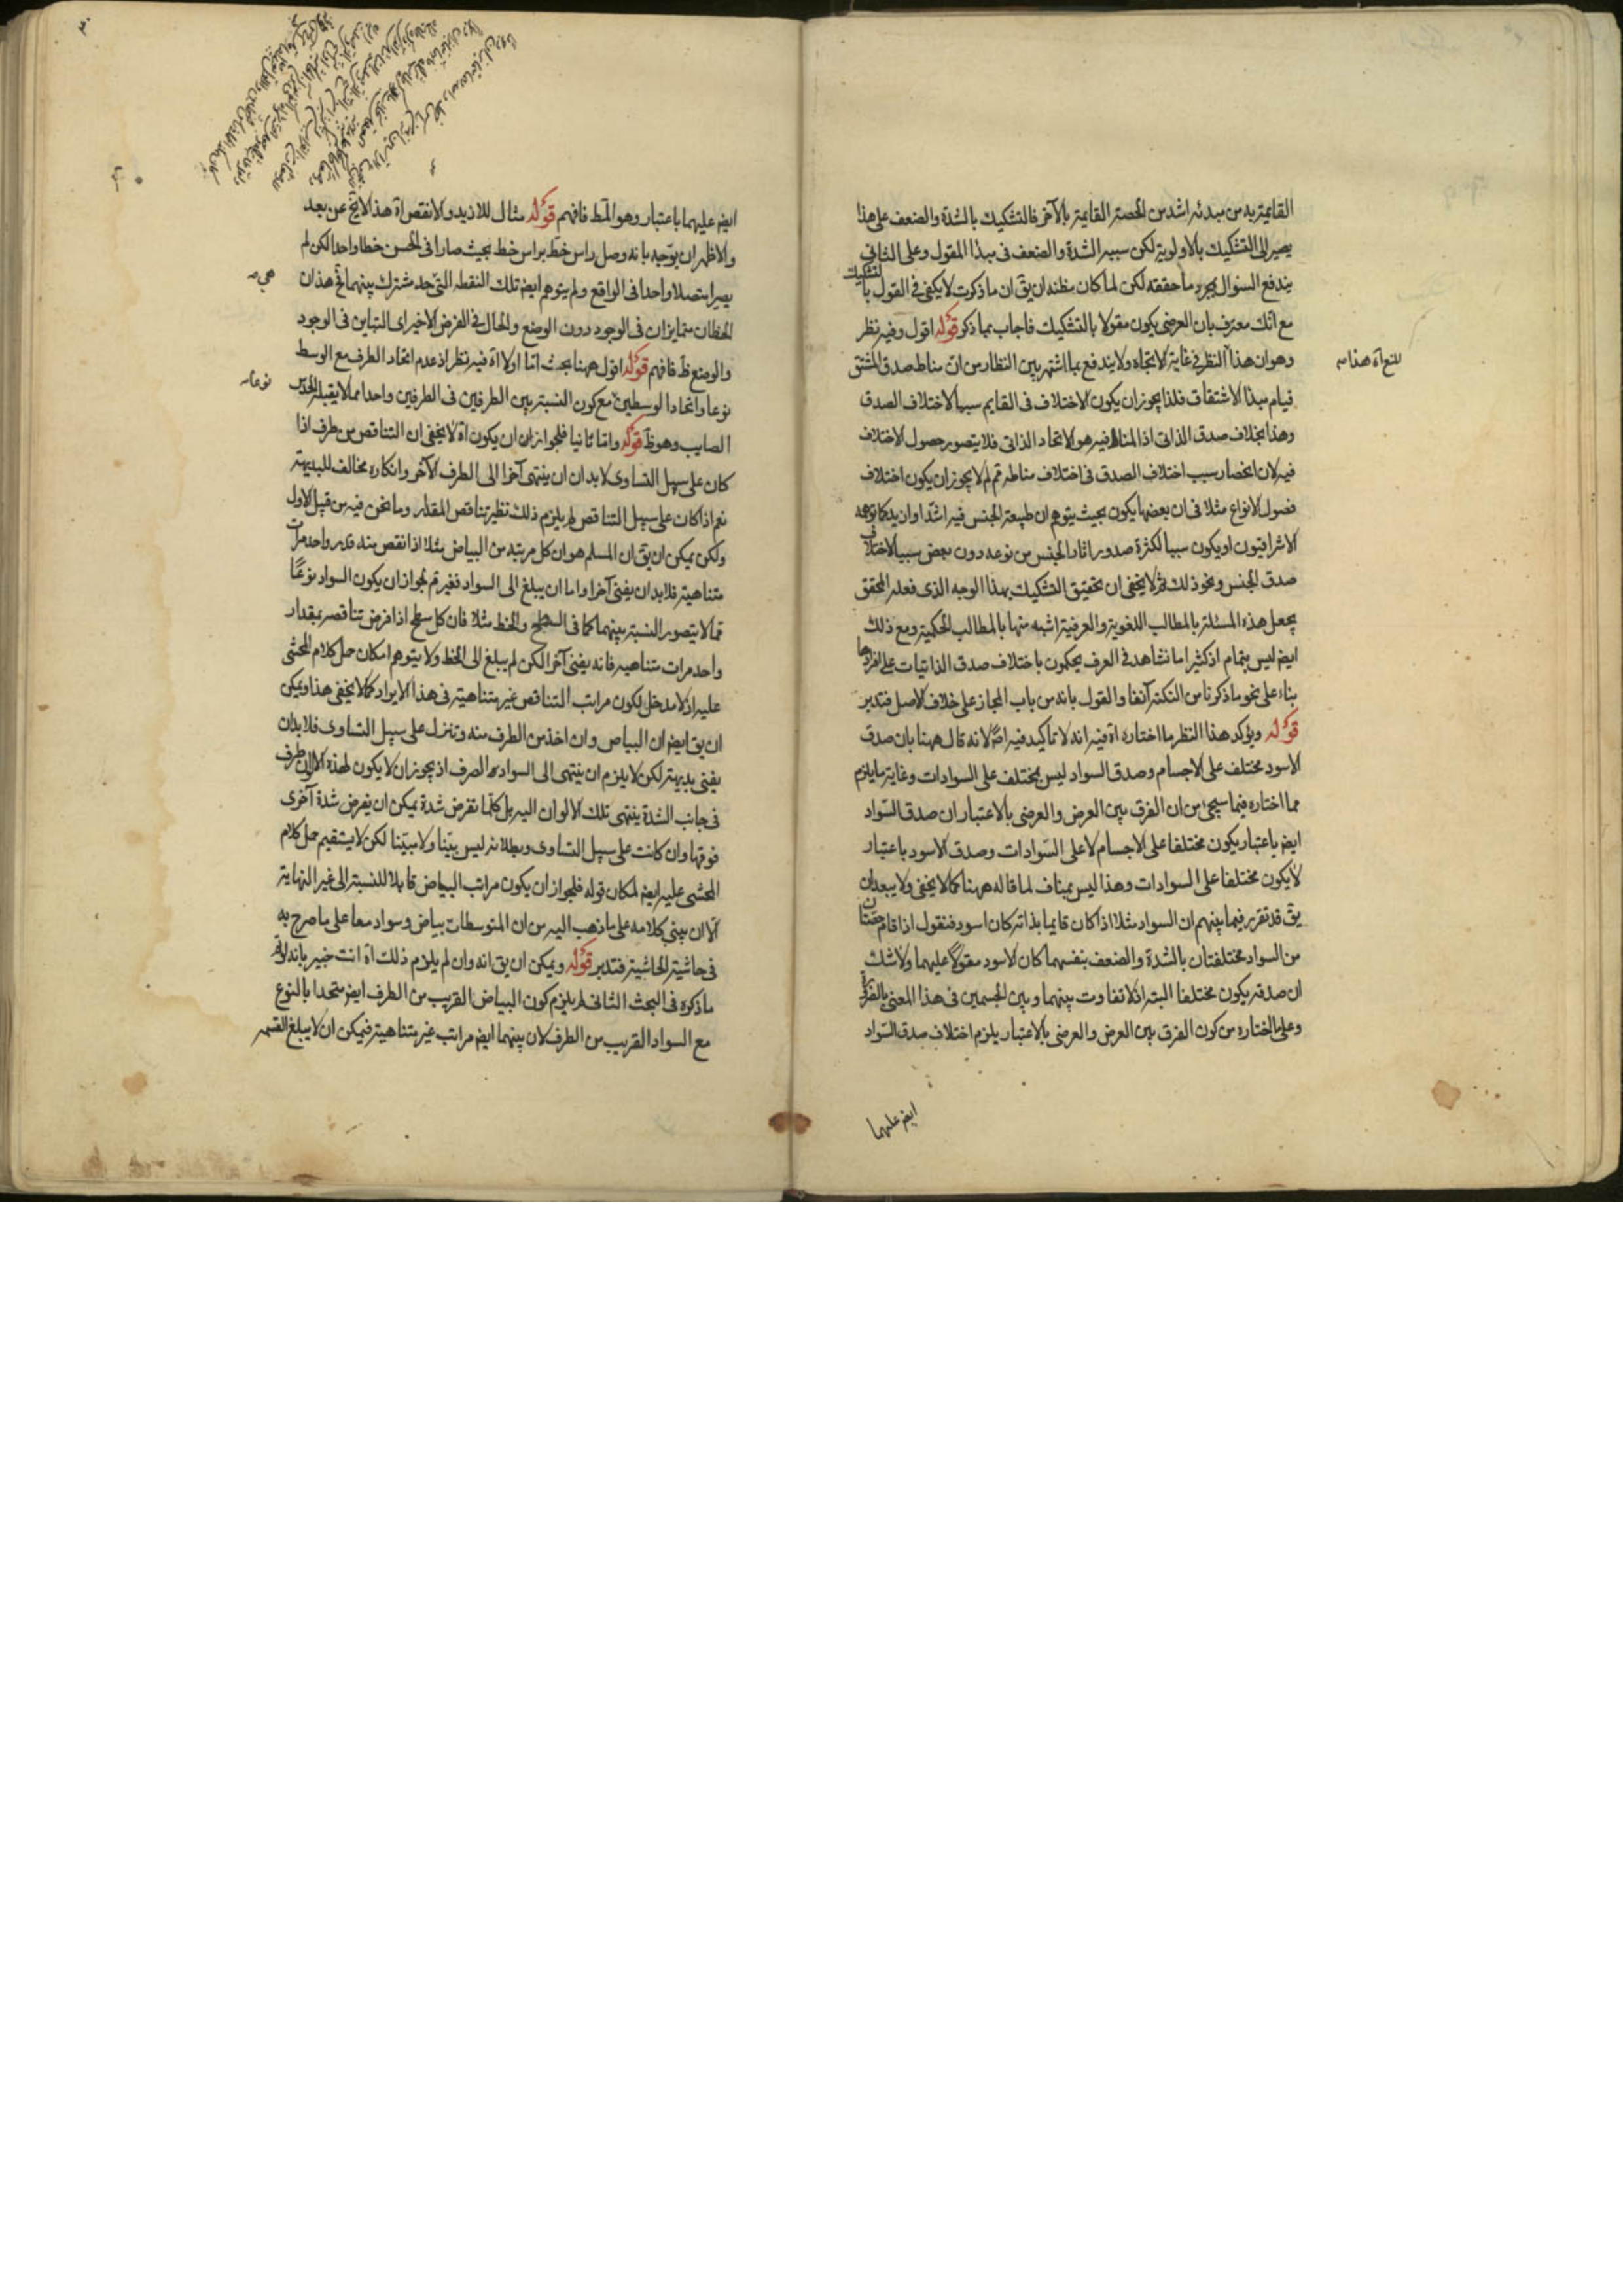 القايمة به من مبدئه اشد من الحصة القايمة بالآخر فالتشكيك بالشدة والضعف على هذا
يصير الى التشكيك بالاولوية لكن سببه الشدة والضعف فى مبدا المقول وعلى الثانى
يندفع السؤال بمجرد ما حققته لكن لما كان مظنه ان يق ان ما ذكرت لا يكفى فى القول بالتشكيك
مع انك معترف بان العرضى يكون مقولا بالتشكيك فاجاب بما ذكر قوله اقول وفيه نظر
وهو ان هذا النظر فى غاية الاتجاه ولا يندفع بما اشتهر بين النظار من ان مناط صدق المشتق
للنع آه هذا مه
قيام مبدا الاشتقاق فلذا يجوز ان يكون الاختلاف فى القايم سببا لاختلاف الصدق
وهذا بخلاف صدق الذاتى اذ المناط فيه هو الاتحاد الذاتى فلا يتصور حصول الاختلاف
فيه لان انحصار سبب اختلاف الصدق فى اختلاف مناطه تم لم لا يجوز ان يكون اختلاف
فصول الانواع مثلا فى ان بعضها يكون بحيث يتوهم ان طبيعة الجنس فيه اشد او ازيد كما توهمه
الاشراقيون او يكون سببا لكثرة صدور اثار الجنس من نوعه دون بعض سببا لاختلاف
صدق الجنس ونحو ذلك ثم لا يخفى ان تحقيق التشكيك بهذا الوجه الذى فعله المحقق
يجعل هذه المسئلة بالمطالب اللغوية والعرفية اشبه منها بالمطالب الحكمية ومع ذلك
ايض ليس بتمام اذ كثيرا ما نشاهد فى العرف يحكمون باختلاف صدق الذاتيات على افرادها
بناء على نحو ما ذكرنا من النكتة آنفا والقول بانه من باب المجاز على خلاف الاصل فتدبر
قوله ويؤكد هذا النظر ما اختاره آه فيه انه لا تاكيد فيه اصلا لانه قال ههنا بان صدق
الاسود مختلف على الاجسام وصدق السواد ليس بمختلف على السوادات وغاية ما يلزم
مما اختاره فيما سيجئ من ان الفرق بين العرض والعرضى بالاعتبار ان صدق السواد
ايض باعتبار يكون مختلفا على الاجسام لا على السوادات وصدق الاسود باعتبار
لا يكون مختلفا على السوادات وهذا ليس بمناف لما قاله ههنا كما لا يخفى ولا يبعد ان
يق قد تقرر فيما بينهم ان السواد مثلا اذا كان قايما بذاته كان اسود فنقول اذا قام حصتان
من السواد مختلفتان بالشدة والضعف بنفسهما كان الاسود مقولا عليهما ولا شك
ان صدقه يكون مختلفا البتة اذ لا تفاوت بينهما وبين الجسمين فى هذا المعنى بالضرورة
وعلى ما اختاره من كون الفرق بين العرض والعرضى بالاعتبار يلزم اختلاف صدق السواد
ايض عليهما
ايض عليهما باعتبار وهو المط فافهم قوله مثال للازيد والانقص آه هذا لا يخ عن بعد
والاظهر ان يوجه بانه وصل راس خط براس خط بحيث صارا فى الحس خطا واحدا لكن لم
يصيرا متصلا واحدا فى الواقع ولم يتوهم ايض تلك النقطة التى حد مشترك بينهما تخ هذان
هى مه
الخطان متمايزان فى الوجود دون الوضع والحال فى الفرض الاخير اى التباين فى الوجود
والوضع ظ فافهم قوله اقول ههنا بحث اما اولا آه فيه نظر اذ عدم اتحاد الطرف مع الوسط
نوعا واتحاد الوسطين مع كون النسبة بين الطرفين فى الطرفين واحدا مما لا يقبله الحدس
نوعا مه
الصايب وهو ظ قوله واما ثانيا فلجواز ان يكون آه لا يخفى ان التناقص من طرف اذا
كان على سبيل التساوى لا بد ان ينتهى آخرا الى الطرف الآخر وانكاره مخالف للبديهة
نعم اذا كان على سبيل التناقص لم يلزم ذلك نظير تناقص المقدار وما نحن فيه من قبيل الاول
ولكن يمكن ان يق ان المسلم هو ان كل مرتبة من البياض مثلا اذا نقص منه قدر واحد مرات
متناهية فلا بد ان يفنى آخرا واما ان يبلغ الى السواد فغير تم لجواز ان يكون السواد نوعًا
مما لا يتصور النسبة بينهما كما فى السطح والخط مثلا فان كل سطح اذا فرض تناقصه بمقدار
واحد مرات متناهية فانه يفنى آخرا لكن لم يبلغ الى الخط ولا يتوهم امكان حمل كلام المحشى
عليه اذ لا مدخل لكون مراتب التناقص غير متناهية فى هذا الايراد كما لا يخفى هذا ويمكن
ان يق ايض ان البياض وان اخذ من الطرف منه وتنزل على سبيل التساوى فلا بد ان
يفنى بديهة لكن لا يلزم ان ينتهى الى السواد الصرف اذ يجوز ان لا يكون لهذه الالوان طرف
فى جانب الشدة ينتهى تلك الالوان اليه بل كلما نفرض شدة يمكن ان يفرض شدة آخرى
فوقها وان كانت على سبيل التساوى وبطلانه ليس بينا ولا مبينا لكن لا يستقيم حمل كلام
المحشى عليه ايض لمكان قوله فلجواز ان يكون مراتب البياض قابلا للنسبة الى غير النهاية
الا ان يبنى كلامه على ما ذهب اليه من ان المتوسطات بياض وسواد معا على ما صرح به
فى حاشية الحاشية فتدبر قوله ويمكن ان يق انه وان لم يلزم ذلك آه انت خبير بانه لو تم
ما ذكره فى البحث الثانى لم يلزم كون البياض القريب من الطرف ايض متحدا بالنوع
مع السواد القريب من الطرف لان بينهما ايض مراتب غير متناهية فيمكن ان لا يبلغ القسمة